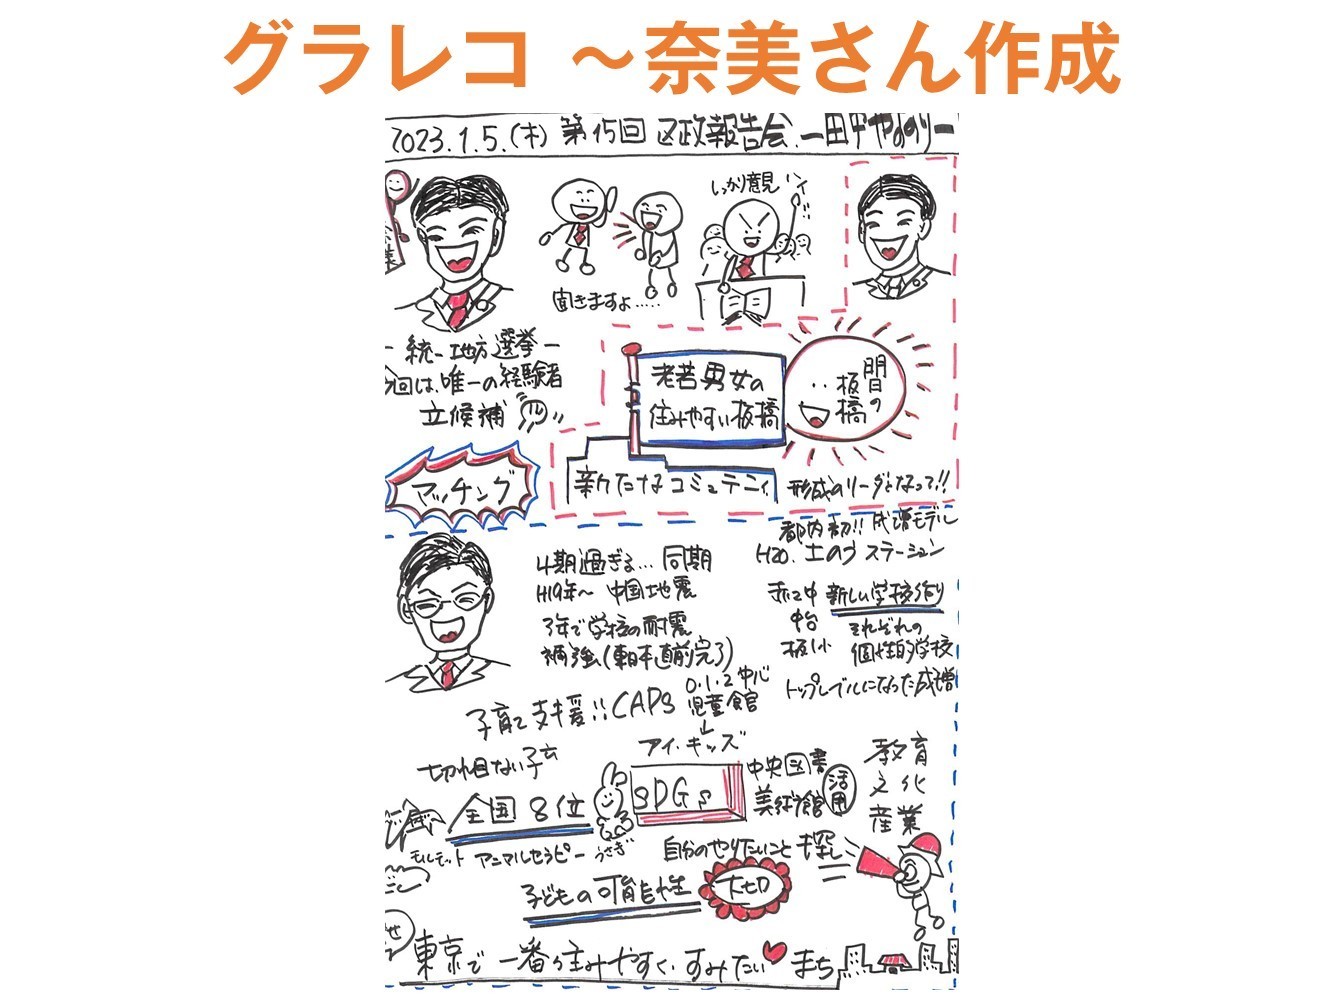 グラレコ ～奈美さん作成
2023.1.5.(木) 第15回 区政報告会.ー田中やすのりー
しっかり意見
聞きますよ.....
ー統一地方選挙ー
今回は、唯一の経験者
立候補
老若男女の
住みやすい板橋
明日の
板橋
マッチング
新たなコミュニティ
形成のリーダとなって!!
4期過ぎる… 同期
H19年～ 中国地震
3年で学校の耐震
補強(東日本直前完了)
都内初!! 成増モデル
H20. 土のうステーション
赤二中 新しい学校作り
中台
板小
それぞれの
個性的学校
トップレベルになった成増
子育て支援!! CAPS
0.1.2中心
児童館
↓
アイ・キッズ
切れ目ない子育
全国8位
SDGs
中央図書
美術館
活用
教育
文化
産業
モルモット アニマルセラピー うさぎ
自分のやりたいこと探し
子どもの可能性
大切
東京で一番住みやすく、すみたい♥まち